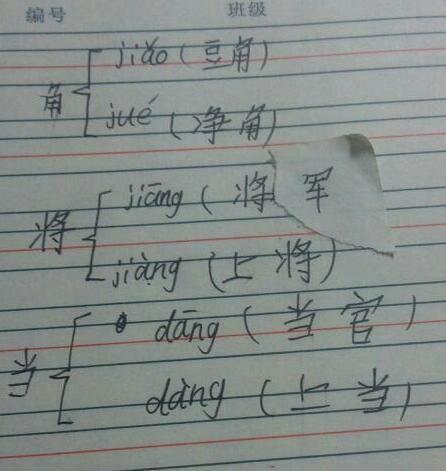 编号 班级
角 jiǎo (豆角)
jué (净角)
将 jiāng (将军
jiàng (上将)
当 dāng (当官)
dàng (上当)